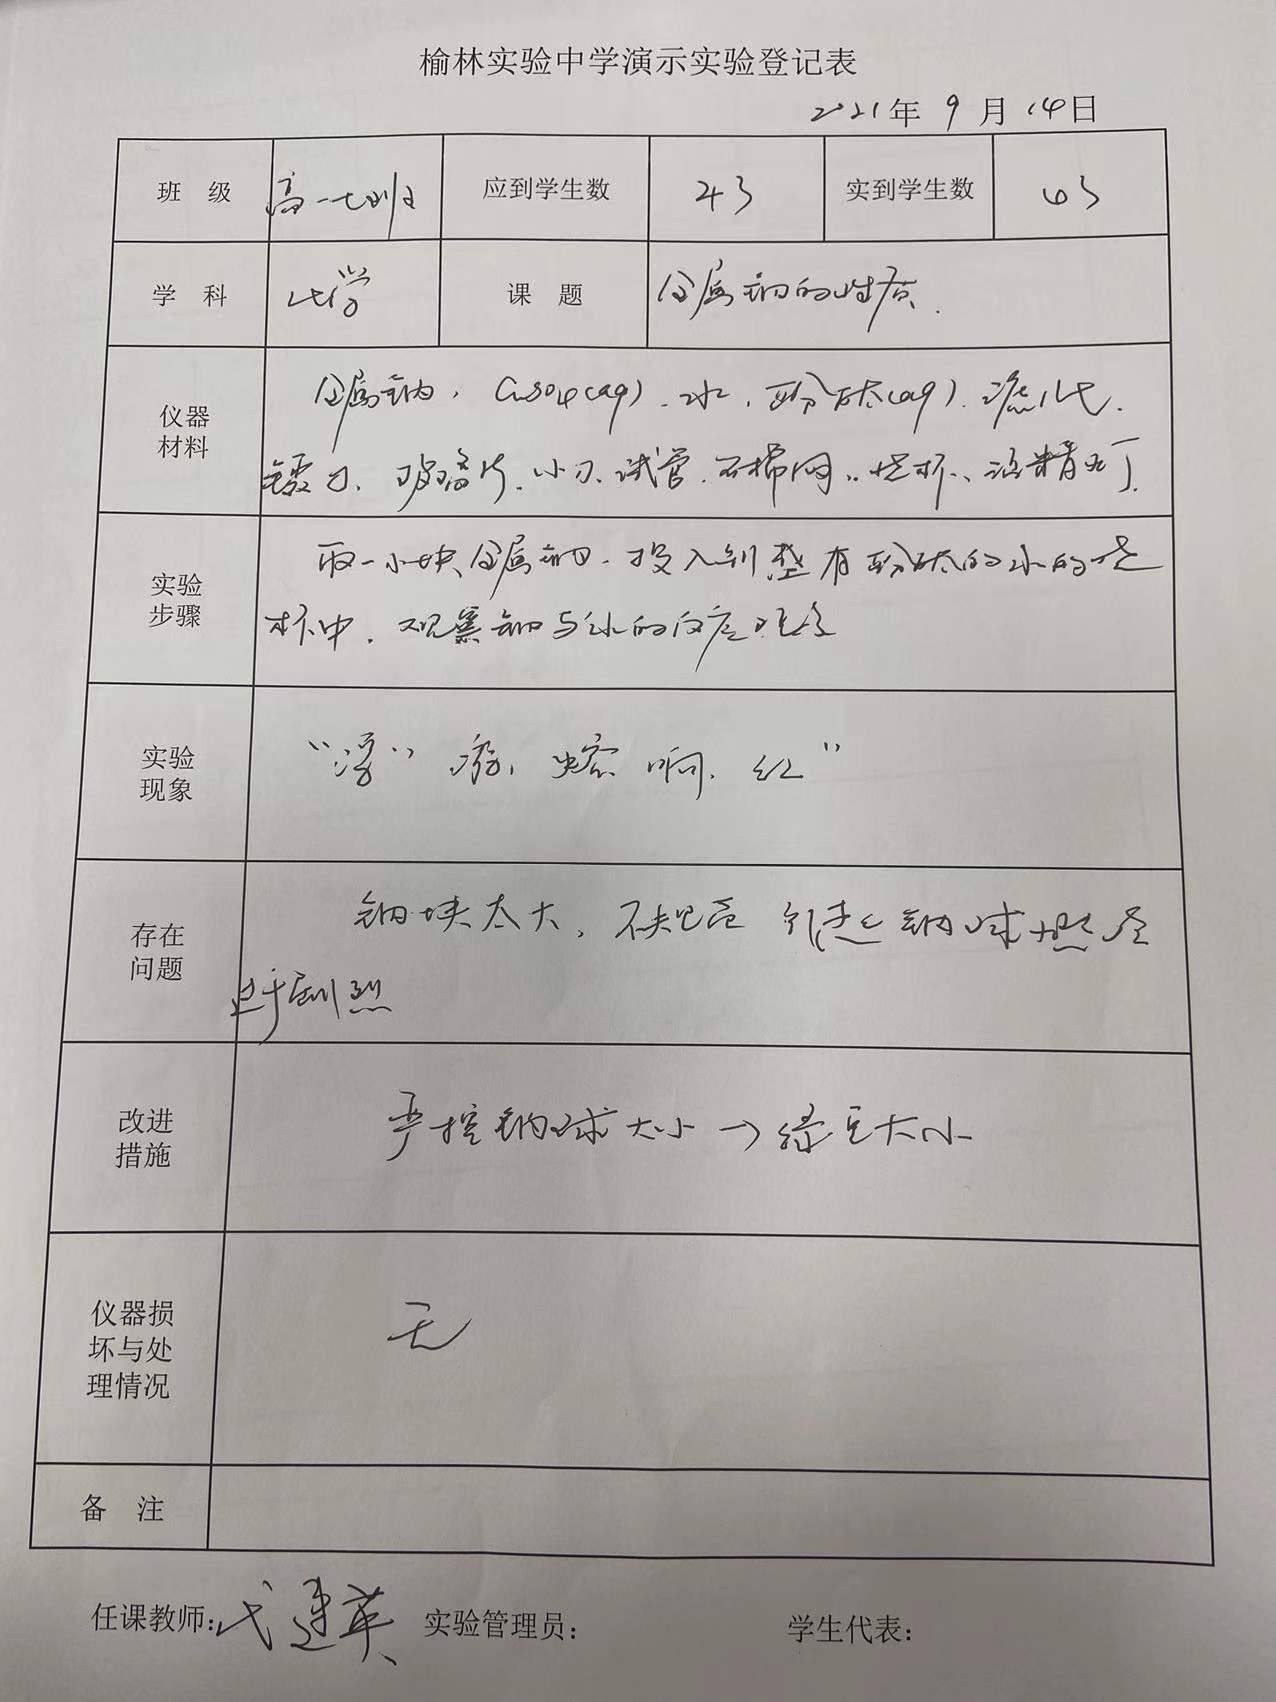 榆林实验中学演示实验登记表
2021年 9 月 14日
班 级 高一七班 应到学生数 43 实到学生数 43
学 科 化学 课 题 金属钠的性质.
仪器
材料
金属钠, CuSO4(aq). 水, 酚酞(aq). 滤纸.
镊子. 玻璃片. 小刀. 试管. 石棉网. 烧杯. 酒精灯
实验
步骤
取一小块金属钠. 投入到盛有酚酞的水的烧
杯中. 观察钠与水的反应现象
实验
现象
“浮” 游, 熔 响. 红”
存在
问题
钠块太大, 不规范 引起钠球燃烧
过于剧烈
改进
措施
严控钠球大小→绿豆大小
仪器损
坏与处
理情况
无
备 注
任课教师: 建英 实验管理员: 学生代表: